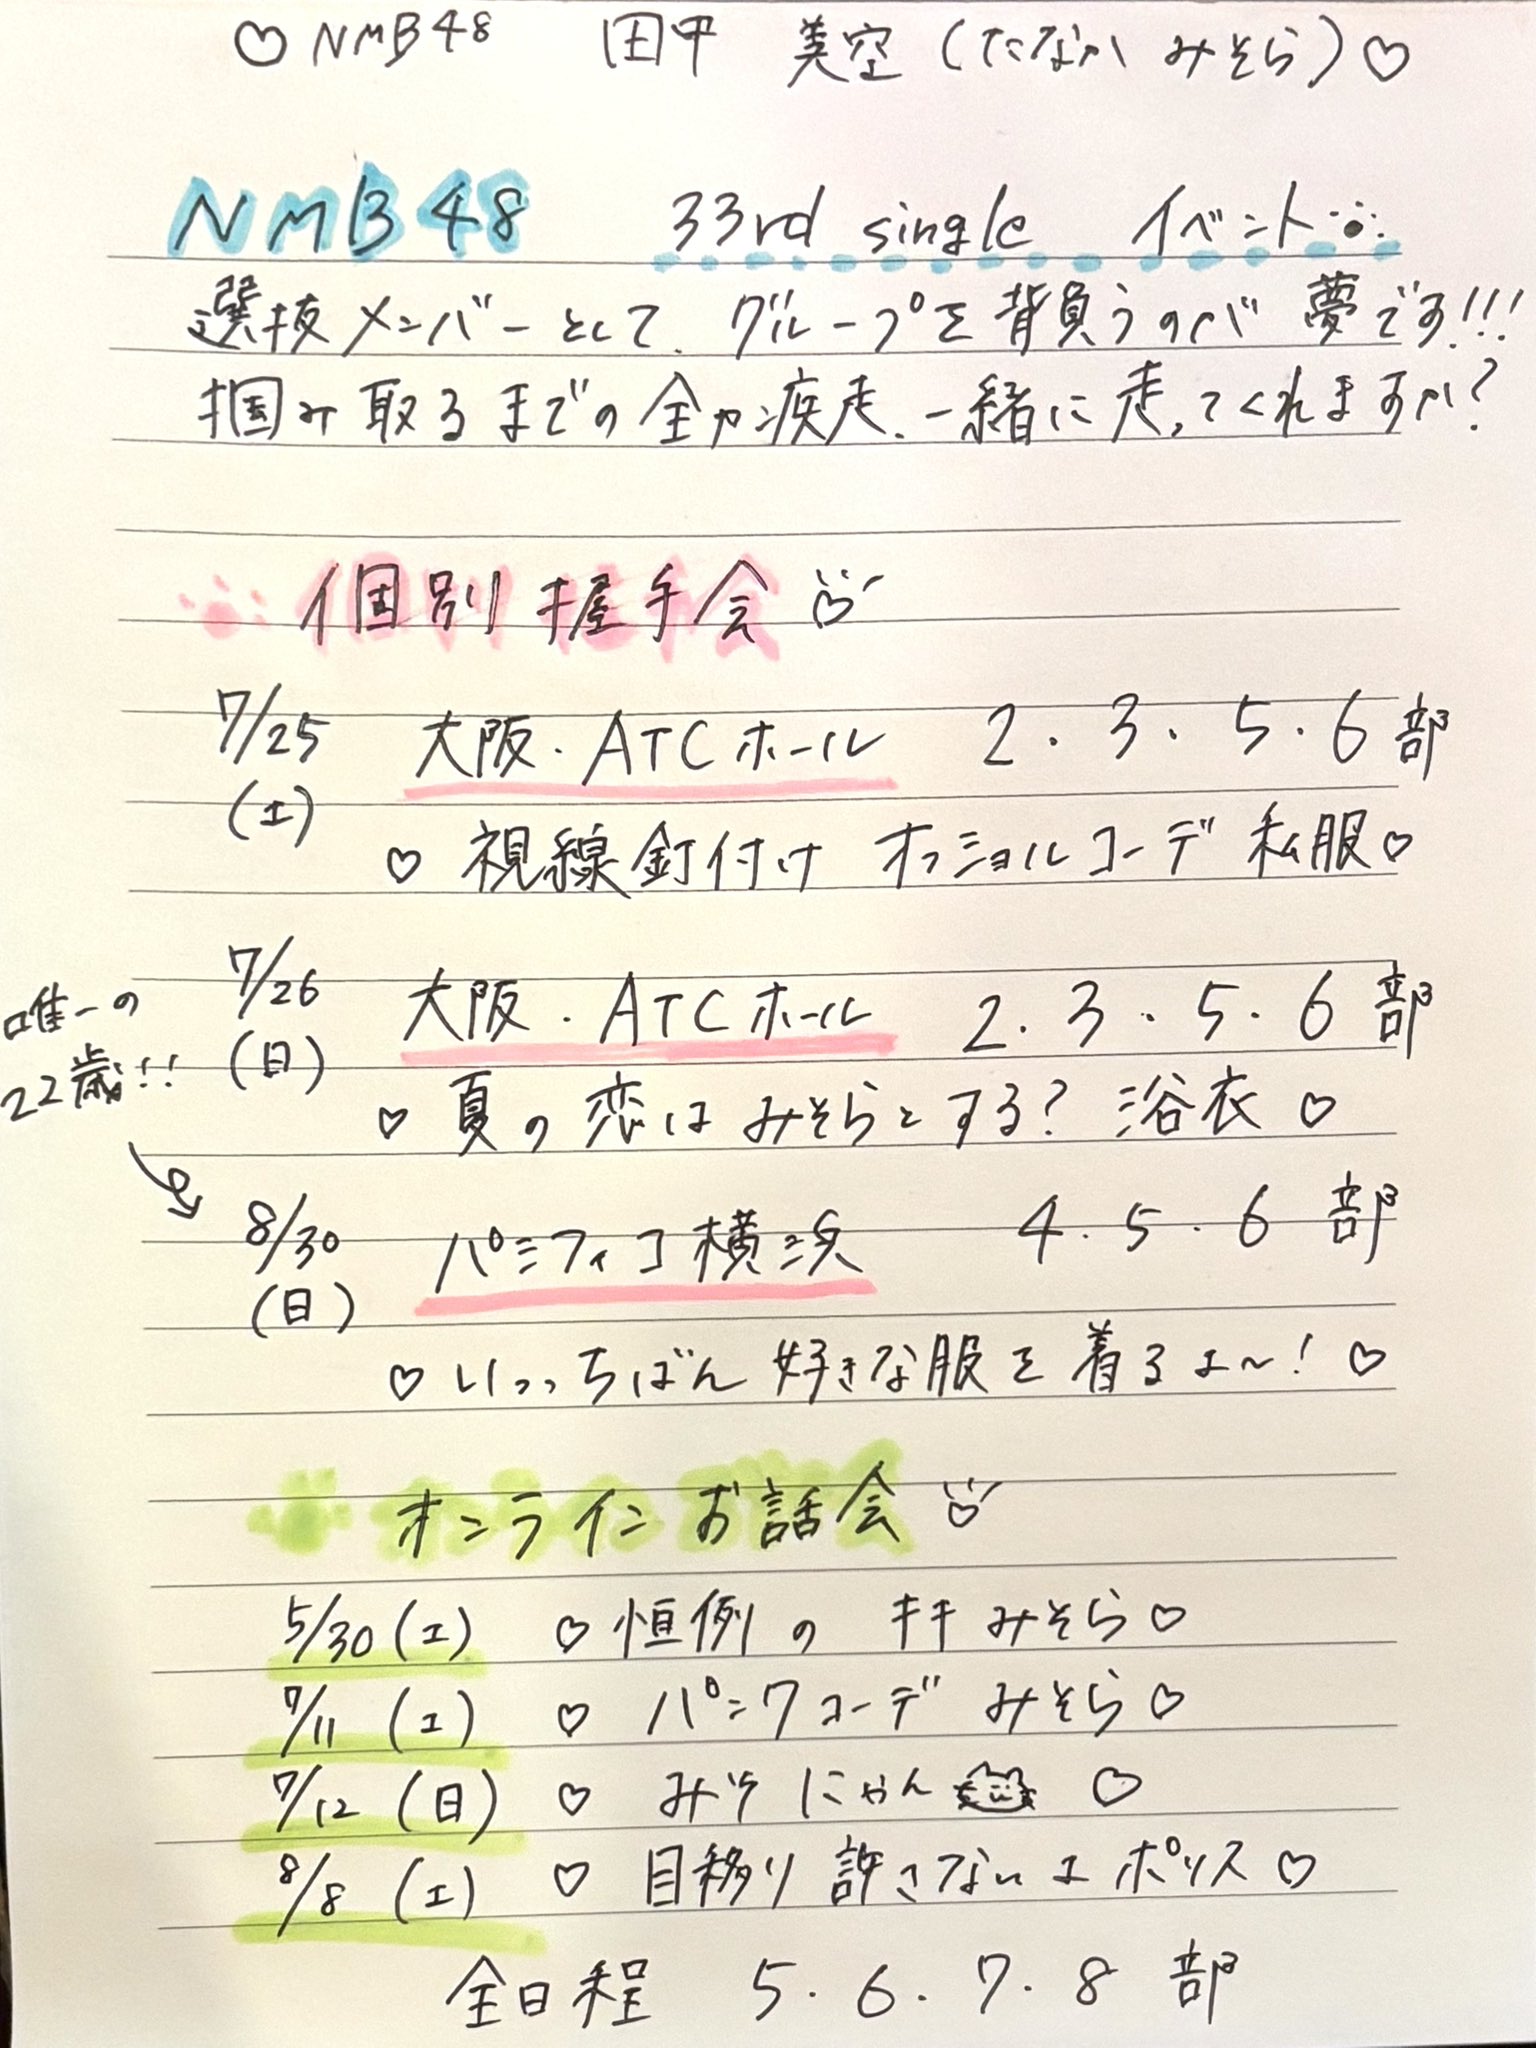 ♡NMB48 田中 美空(たなか みそら)♡
NMB48 33rd single イベント
選抜メンバーとして、グループを背負うのが夢です!!!
掴み取るまでの全力疾走、一緒に走ってくれますか?
個別握手会♡
7/25(土) 大阪・ATCホール 2・3・5・6部
♡視線釘付け オフショルコーデ 私服♡
7/26(日) 大阪・ATCホール 2・3・5・6部
♡夏の恋はみそらとする? 浴衣♡
唯一の
22歳!!
8/30(日) パシフィコ横浜 4・5・6部
♡いっっちばん好きな服を着るよ〜!♡
オンラインお話会♡
5/30(土) ♡恒例の キキみそら♡
7/11(土) ♡パンクコーデ みそら♡
7/12(日) ♡みそにゃん♡
8/8(土) ♡目移り許さないよポリス♡
全日程 5・6・7・8部